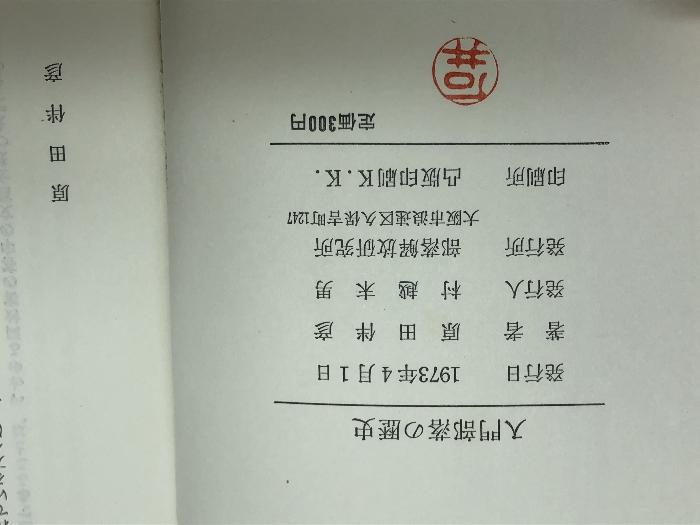 入門部落の歴史
発行日 1973年4月1日
著者 原田伴彦
発行人 村越末男
発行所 部落解放研究所
大阪市浪速区久保吉町1247
印刷所 凸版印刷K.K.
定価300円
石井
原田伴彦